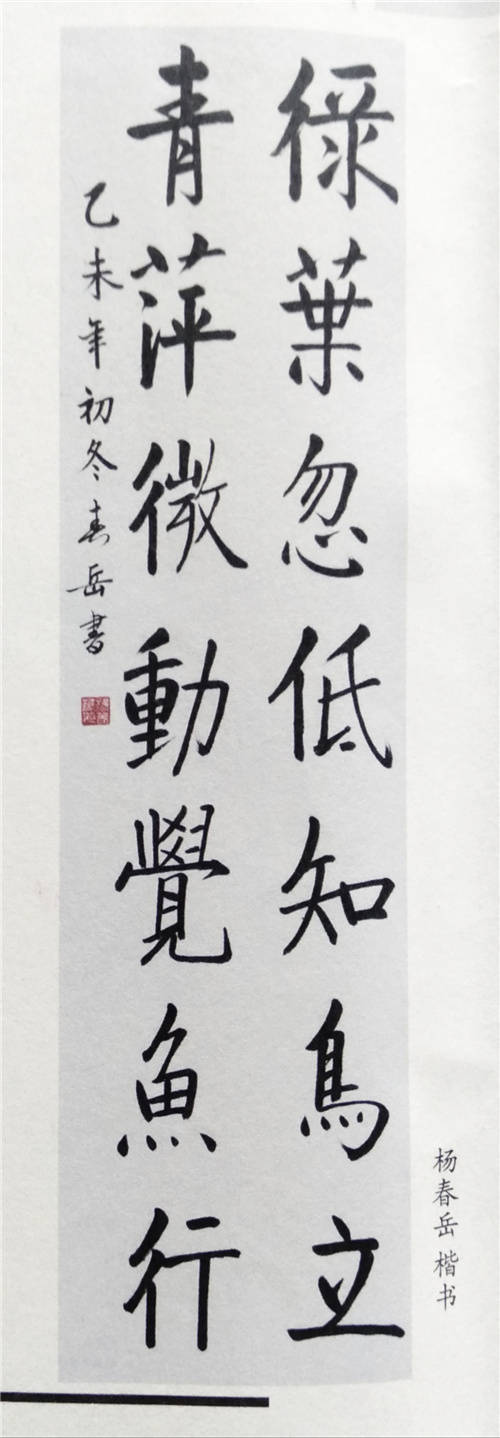 綠葉忽低知鳥立
青萍微動覺魚行
乙未年初冬春岳書
杨春岳 楷书